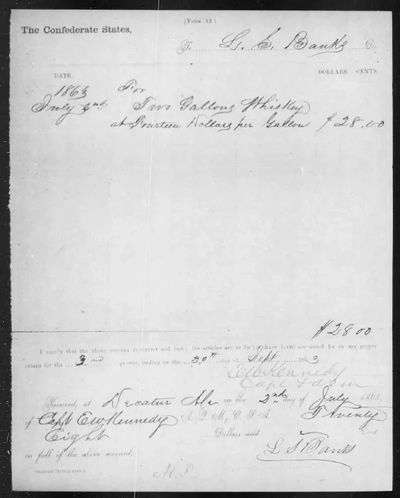 [FORM 12]
The Confederate States,
To L. E. Banks Dr.
DATE. DOLLARS CENTS
1863 For
July 2nd Two Gallons Whiskey
at Fourteen Dollars per Gallon $28.00
$28.00
I certify that the above account is correct and just; the articles are to be accounted for on my property
return for the 3 quarter, ending on the 30th day of Sept 3
E W Kennedy
Received, at Decatur Ala on the 2nd day of July 1863,
of Capt E W Kennedy A. Q. M., C. S. A. Twenty
Eight Dollars and
in full of the above account.
Banks